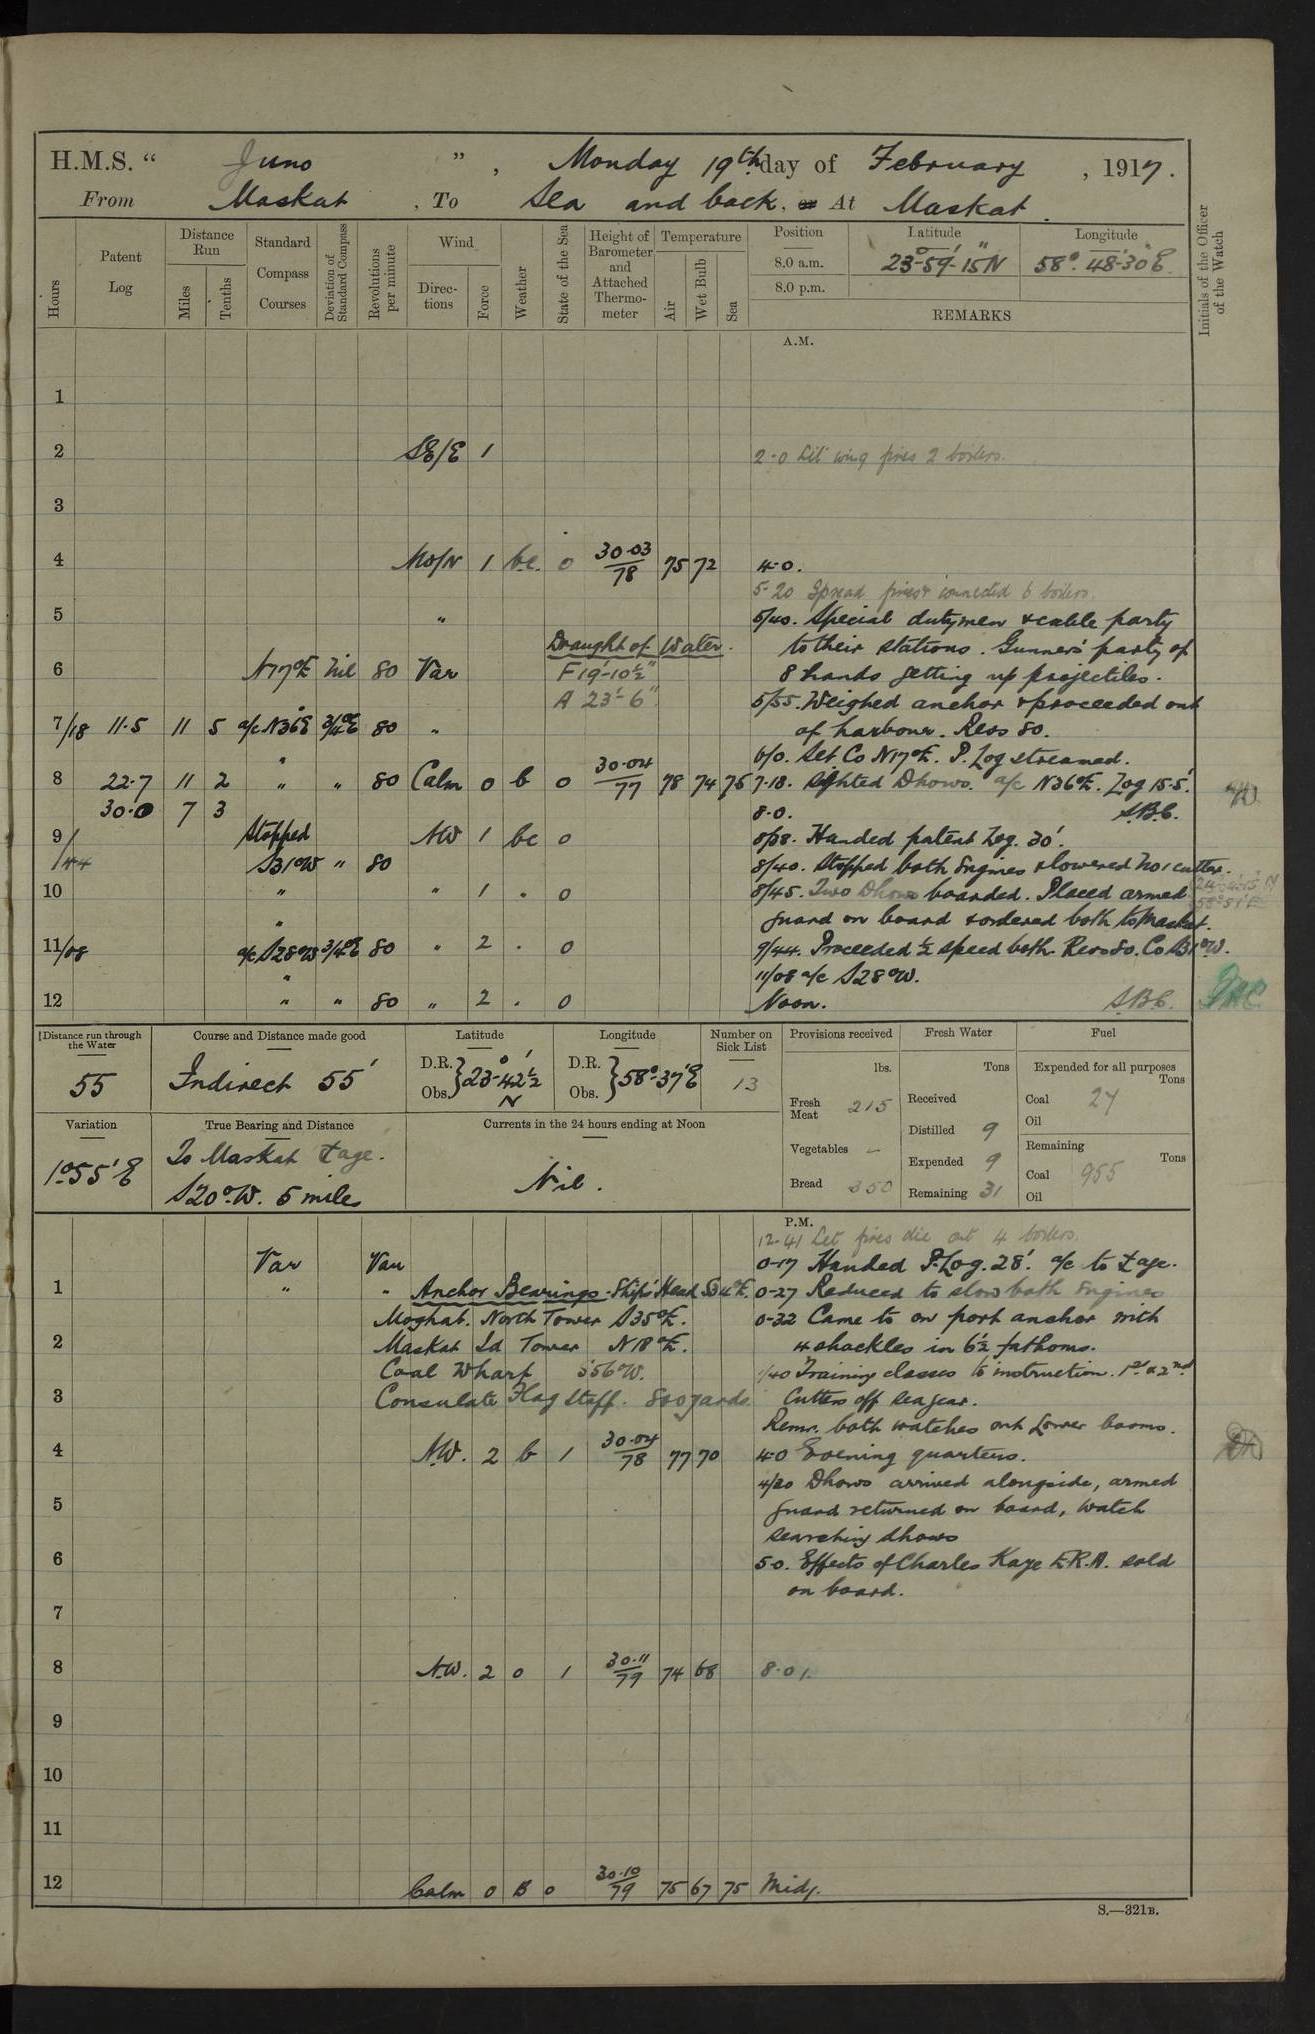 H.M.S. " Juno ", Monday 19th day of February, 1917.
From Maskat, To Sea and back, or At Maskat.
Hours
Patent Log
Distance Run
Miles
Tenths
Standard Compass Courses
Deviation of Standard Compass
Revolutions per minute
Wind
Directions
Force
Weather
State of the Sea
Height of Barometer and Attached Thermometer
Temperature
Air
Wet Bulb
Sea
Position
8.0 a.m.
8.0 p.m.
Latitude
23°-59'-15" N
Longitude
58°-48'-30" E
REMARKS
Initials of the Officer of the Watch
A.M.
1
2 SE/E 1 2-0 Lit wing fires 2 boilers.
3
4 1 b.c. 0 30.03/78 75 72 4-0.
5-20 Spread fires & connected 6 boilers.
5 " 5/40. Special dutymen & cable party
Draught of Water. to their stations. Gunners' party of
6 N17°E Nil 80 Var F 19'-10½" 8 hands getting up projectiles.
A 23'-6" 5/55. Weighed anchor & proceeded out
7/18 11.5 11 5 a/c N36°E 3/4°E 80 " of harbour. Revs 80.
" 6/0. Set Co N17°E. P. Log streamed.
8 22.7 11 2 " " 80 Calm 0 b 0 30.04/77 78 74 76 7-18. Sighted Dhows. a/c N36°E. Log 15.5'
30.0 7 3 8-0. S.B.C.
9/44 Stopped NW 1 bc 0 8/38. Handed patent Log. 30'.
S31°W " 80 8/40. Stopped both Engines & lowered No 1 cutter.
10 " " 1 . 0 8/45. Two Dhows boarded. Placed armed
" guard on board & ordered both to Maskat.
11/08 a/c S28°W 3/4°E 80 " 2 . 0 9/44. Proceeded ½ speed both. Revs 80. Co S31°W.
" 11/08 a/c S28°W.
12 " " 80 " 2 . 0 Noon. S.B.C.
Distance run through the Water
55
Course and Distance made good
Indirect 55'
Latitude
D.R.
Obs.
23°-42½' N
Longitude
D.R.
Obs.
58°-37' E
Number on Sick List
13
Provisions received
lbs.
Fresh Meat 215
Vegetables -
Bread 350
Fresh Water
Tons
Received
Distilled 9
Expended 9
Remaining 31
Fuel
Expended for all purposes
Tons
Coal 27
Oil
Remaining
Tons
Coal 955
Oil
Variation
1°55' E
True Bearing and Distance
To Maskat
S20°W. 5 miles
Currents in the 24 hours ending at Noon
Nil.
P.M.
12-41 Let fires die out 4 boilers.
Var Var 0-17 Handed P. Log. 28'. a/c to
1 " " Anchor Bearings. Ship's Head 0-27 Reduced to slow both Engines
Moghab. North Tower S35°E. 0-32 Came to on port anchor with
2 Maskat Id Tower N18°E. 4 shackles in 6½ fathoms.
Coal Wharf S56°W. 1/40 Training classes to instruction. 1st & 2nd
3 Consulate Flag staff. 800 yards. Cutters off sea gear.
Remr. both watches out Lower booms.
4 N.W. 2 b 1 30.04/78 77 70 4-0 Evening quarters.
4/20 Dhows arrived alongside, armed
5 guard returned on board, watch
searching dhows
6 5-0. Effects of Charles Kaye E.R.A. sold
on board.
7
8 N.W. 2 0 1 30.11/79 74 68 8-0
9
10
11
12 Calm 0 B 0 30.10/79 75 67 75 Midt.
S.—321B.